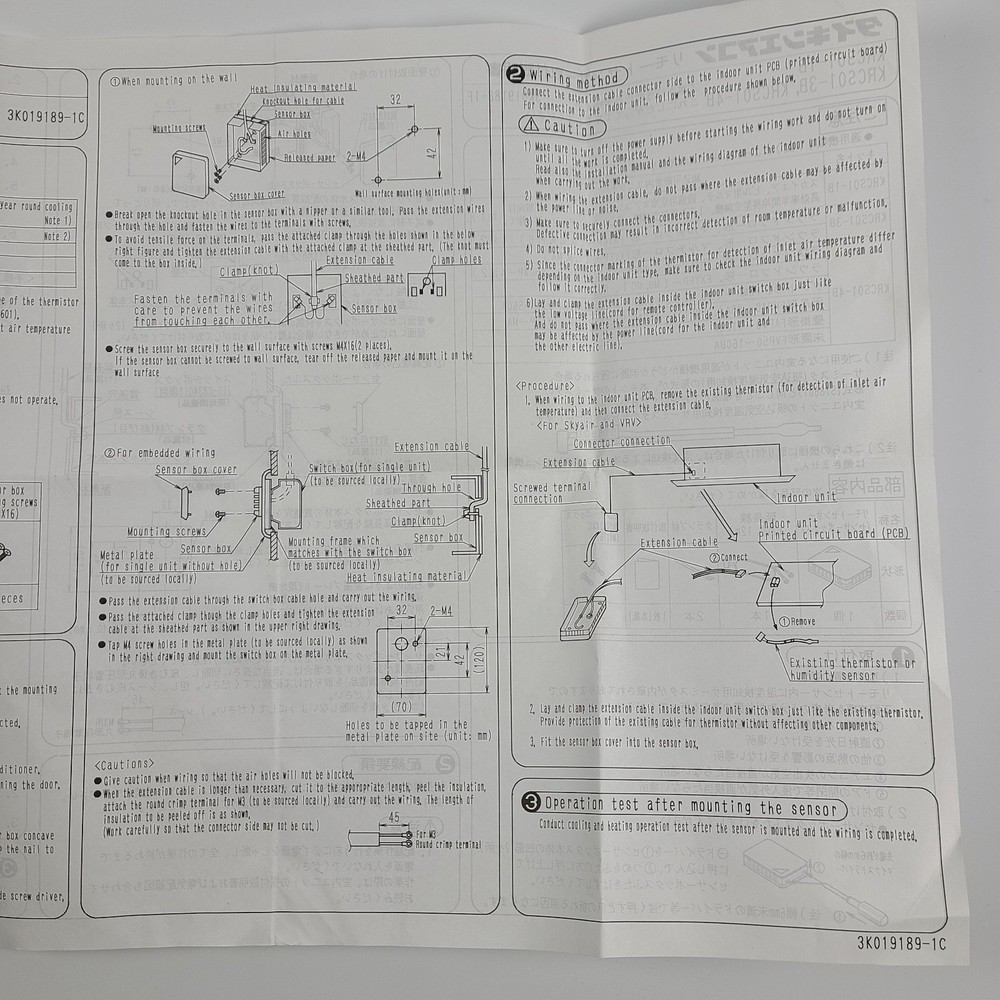 3K019189-1C
year round cooling
Note 1)
Note 2)
pe of the thermistor
601).
t air temperature
es not operate.
or box
ng screws
X16)
eces
t the mounting
cted.
ditioner.
ning the door.
r box concave
p the nail to
de screw driver.
①When mounting on the wall
Heat insulating material
Knockout hole for cable
Sensor box
Mounting screws
Air holes
Released paper
Sensor box cover
32
42
2-M4
Wall surface mounting holes(unit:mm)
●Break open the knockout hole in the sensor box with a nipper or a similar tool. Pass the extension wires
through the hole and fasten the wires to the terminals with screws.
●To avoid tensile force on the terminals, pass the attached clamp through the holes shown in the below
right figure and tighten the extension cable with the attached clamp at the sheathed part. (The knot must
come to the box inside.)
Extension cable
Clamp holes
Clamp(knot)
Sheathed part
Fasten the terminals with
care to prevent the wires
from touching each other.
Sensor box
●Screw the sensor box securely to the wall surface with screws M4X16(2 places).
If the sensor box cannot be screwed to wall surface, tear off the released paper and mount it on the
wall surface
②For embedded wiring
Sensor box cover
Switch box(for single unit)
(to be sourced locally)
Extension cable
Through hole
Sheathed part
Clamp(knot)
Sensor box
Mounting screws
Sensor box
Metal plate
(for single unit without hole)
(to be sourced locally)
Mounting frame which
matches with the switch box
(to be sourced locally)
Heat insulating material
●Pass the extension cable through the switch box cable hole and carry out the wiring.
●Pass the attached clamp though the clamp holes and tighten the extension
cable at the sheathed part as shown in the upper right drawing.
●Tap M4 screw holes in the metal plate (to be sourced locally) as shown
in the right drawing and mount the switch box on the metal plate.
32
2-M4
21
42
(120)
(70)
Holes to be tapped in the
metal plate on site (unit: mm)
<Cautions>
●Give caution when wiring so that the air holes will not be blocked.
●When the extension cable is longer than necessary, cut it to the appropriate length, peel the insulation,
attach the round crimp terminal for M3 (to be sourced locally) and carry out the wiring. The length of
insulation to be peeled off is as shown.
(Work carefully so that the connector side may not be cut.)
45
For M3
Round crimp terminal
2 Wiring method
Connect the extension cable connector side to the indoor unit PCB (printed circuit board)
For connection to the indoor unit, follow the procedure shown below.
Caution
1) Make sure to turn off the power supply before starting the wiring work and do not turn on
until all the work is completed.
Read also the installation manual and the wiring diagram of the indoor unit
when carrying out the work.
2) When wiring the extension cable, do not pass where the extension cable may be affected by
the power line or noise.
3) Make sure to securely connect the connectors.
Defective connection may result in incorrect detection of room temperature or malfunction.
4) Do not splice wires.
5) Since the connector marking of the thermistor for detection of inlet air temperature differ
depending on the indoor unit type, make sure to check the indoor unit wiring diagram and
follow it correctly.
6)Lay and clamp the extension cable inside the indoor unit switch box just like
the low voltage line(cord for remote controller).
And do not pass where the extension cable inside the indoor unit switch box
may be affected by the power line(cord for the indoor unit and
the other electric line).
<Procedure>
1. When wiring to the indoor unit PCB, remove the existing thermistor (for detection of inlet air
temperature) and then connect the extension cable.
<For Skyair and VRV>
Connector connection
Extension cable
Screwed terminal
connection
Indoor unit
Indoor unit
Printed circuit board (PCB)
Extension cable
②Connect
①Remove
Existing thermistor or
humidity sensor
2. Lay and clamp the extension cable inside the indoor unit switch box just like the existing thermistor.
Provide protection of the existing cable for thermistor without affecting other components.
3. Fit the sensor box cover into the sensor box.
3 Operation test after mounting the sensor
Conduct cooling and heating operation test after the sensor is mounted and the wiring is completed.
3K019189-1C